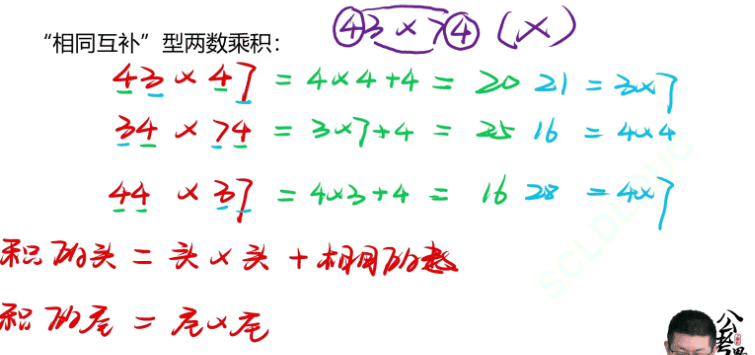 "相同互补"型两数乘积： 43×74 (×)
43 × 47 = 4×4+4 = 20 21 = 3×7
34 × 74 = 3×7+4 = 25 16 = 4×4
44 × 37 = 4×3+4 = 16 28 = 4×7
积的头 = 头×头 + 相同的数
积的尾 = 尾×尾
SCLDLDUC
公考